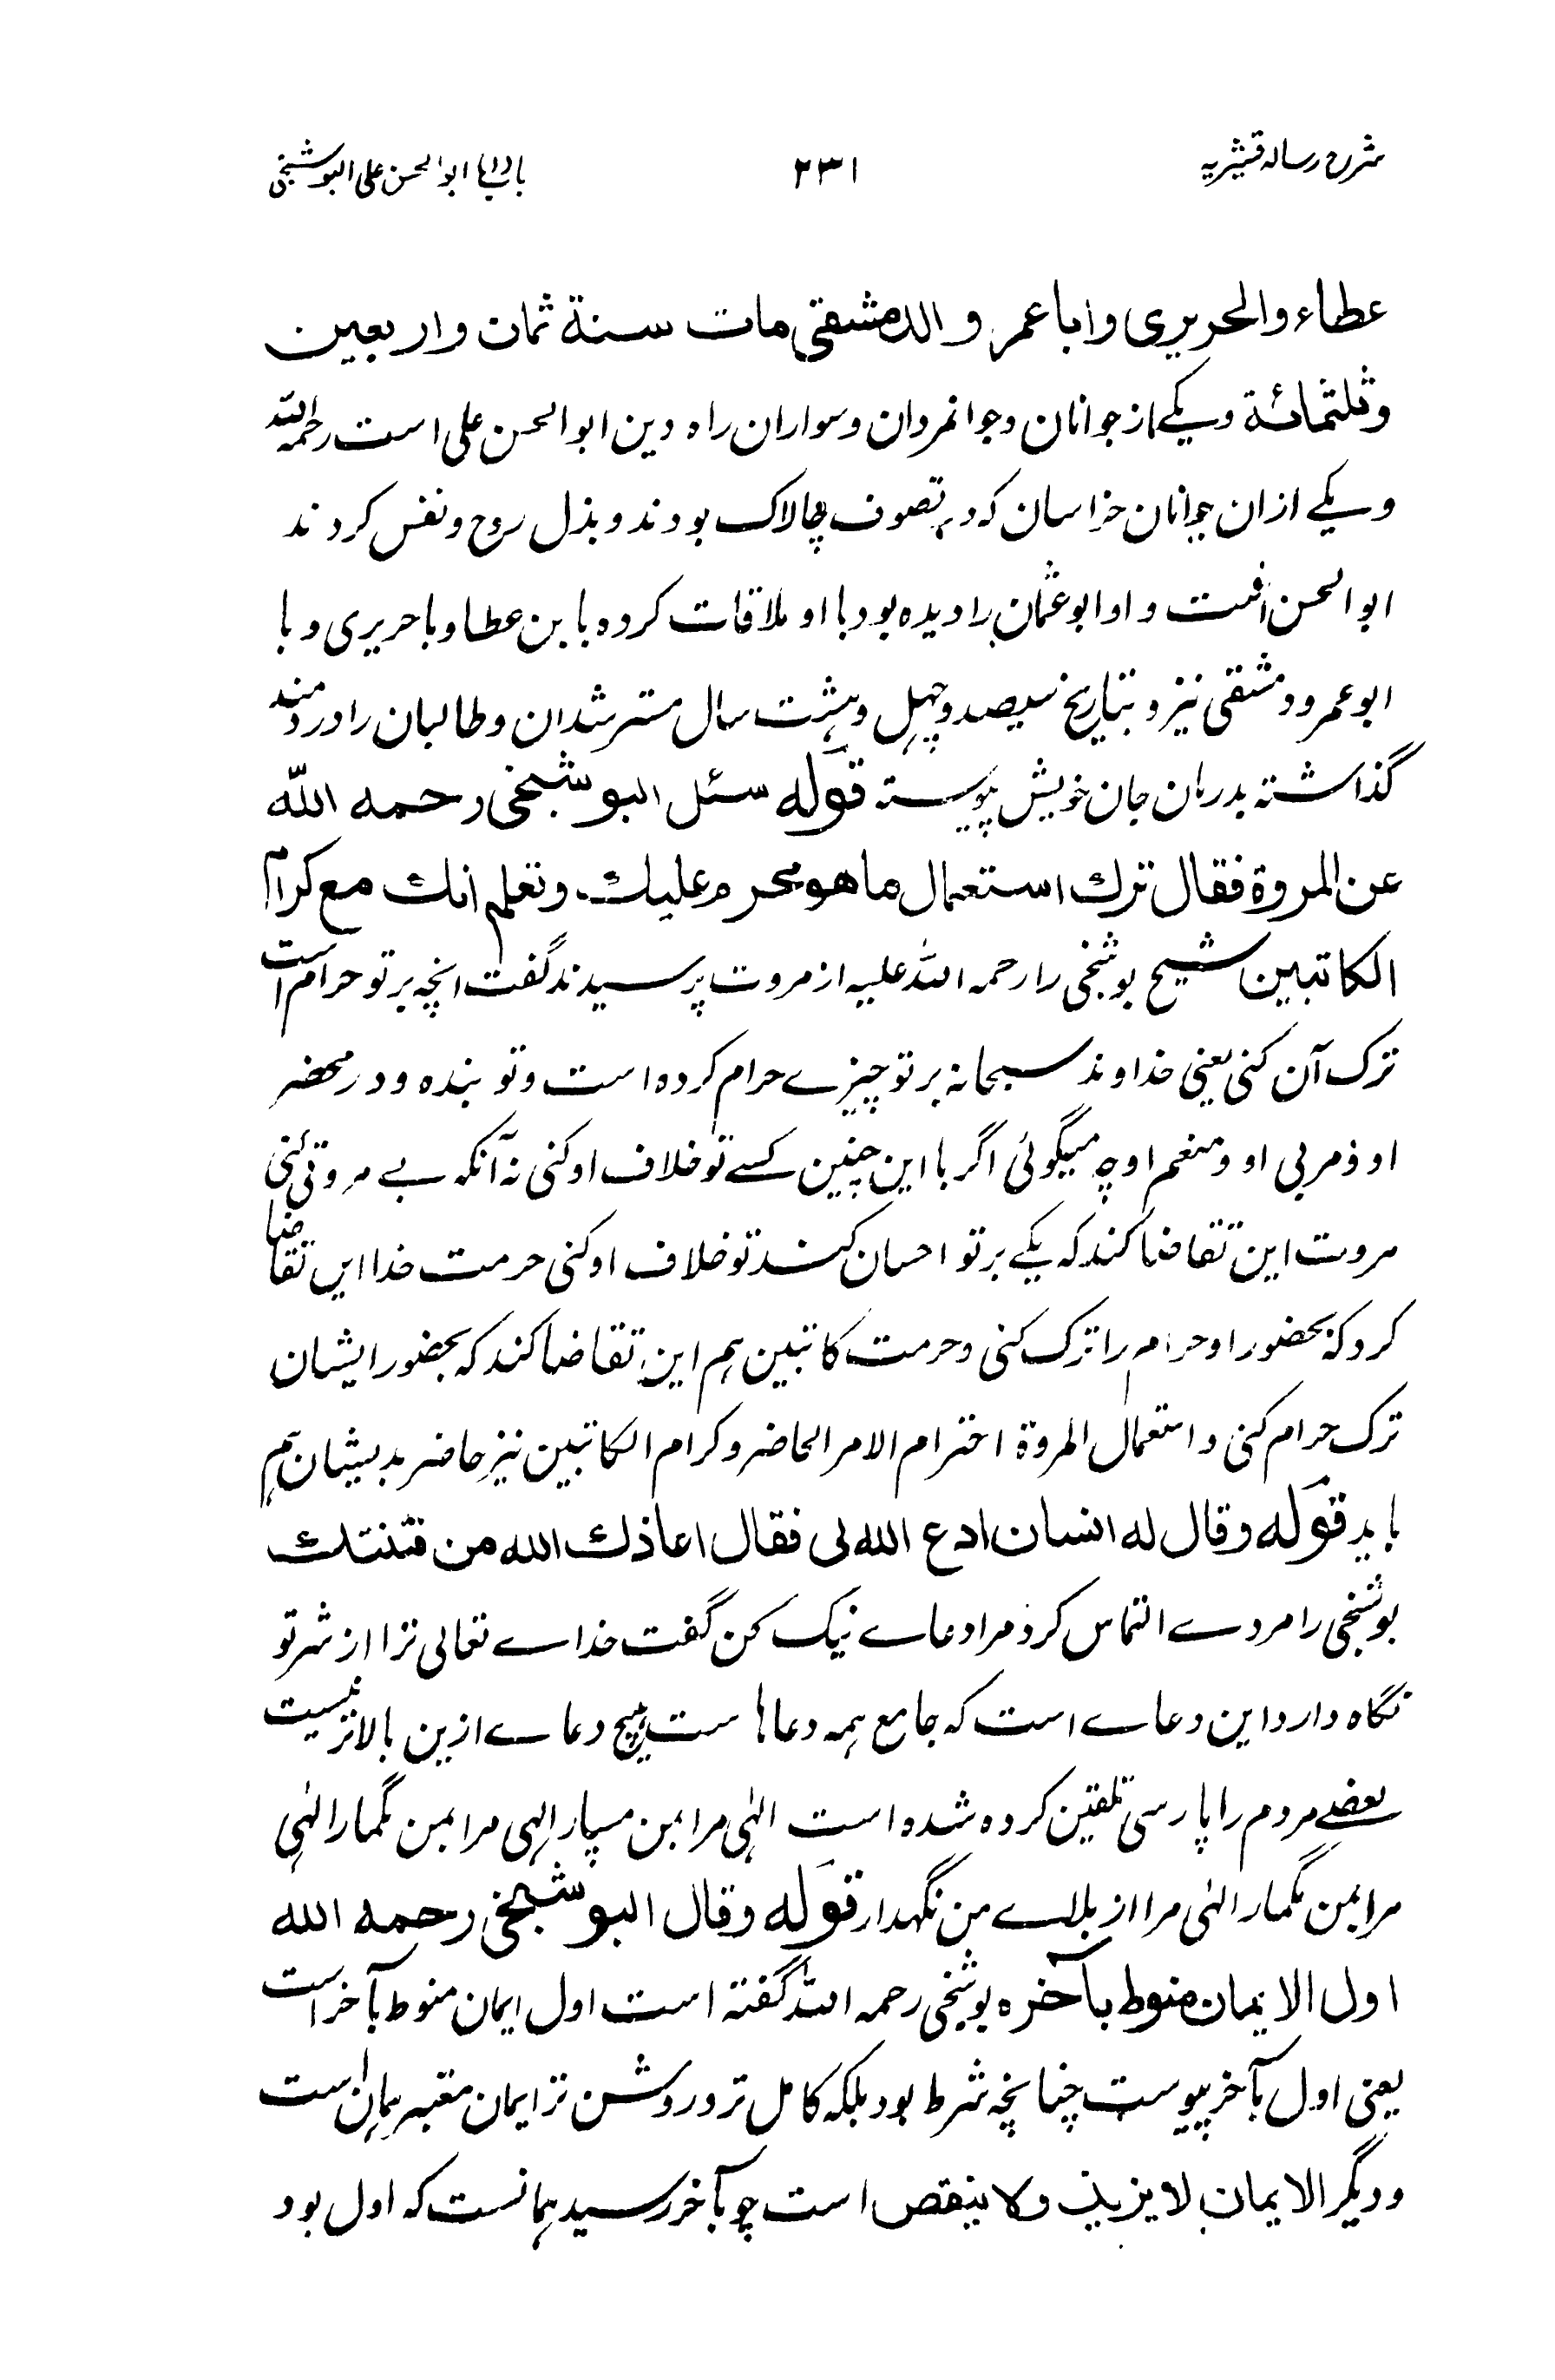 شرح رساله قشیریه ۲۳۱ باب ابو الحسن علی البوشنجی
عطاء والحریری وابا عمر و الدمشقی مات سنة ثمان واربعین
وثلثمائة ویکے از جوانان وجوانمردان وسواران راه دین ابو الحسن علی است رحمه الله
و یکے ازان جوانان خراسان که در تصوف چالاک بودند و بذل روح و نفس کردند
ابوالحسن است و او ابو عثمان را دیده بود با او ملاقات کرده با بن عطا و با حریری و با
ابو عمر و دمشقی نیز و بتاریخ سیصد و چهل و هشت سال مسترشدان و طالبان را دردمند
گذاشته بدرمان جان خویش پیوسته قوله سئل البوشنجی رحمه الله
عن المروة فقال ترك استعمال ما هو محرم علیك وتعلم انك مع کرام
الکاتبین شیخ بوشنجی را رحمه الله علیه از مروت پرسیدند گفت انچه بر تو حرام است
ترک آن کنی یعنی خداوند سبحانه بر تو چیزے حرام کرده است و تو بنده و در محضر
او و مربی او و منعم او چه میگوئی اگر با این چنین کسے تو خلاف او کنی نه آنکه بے مروتی
مروت این تقاضا کند که یکے بر تو احسان کند تو خلاف او کنی حرمت خدا این تقاضا
کرد که بحضور او حرام را ترک کنی و حرمت کاتبین هم این تقاضا کند که بحضور ایشان
ترک حرام کنی و استعمال المروة احترام الامر الحاضر و کرام الکاتبین نیز حاضر بدیشان هم
باید قوله وقال له انسان ادع الله لی فقال اعاذك الله من فتنتك
بوشنجی را مردے التماس کرد مرا دعاے نیک کن گفت خداے تعالی ترا از شر تو
نگاه دارد این دعاے است که جامع همه دعاها ست هیچ دعاے ازین بالاتر نیست
بعضے مردم را پارسی تلقین کرده شده است الهی مرا بمن مسپار الهی مرا بمن مگمار الهی
مرا بمن مگمار الهی مرا از بلاے من نگهدار قوله وقال البوشنجی رحمه الله
اول الایمان منوط بآخره بوشنجی رحمه الله گفته است اول ایمان منوط بآخر است
یعنی اول بآخر پیوست چنانچه شرط بود بلکه کامل تر و روشن تر ایمان معتبر همان است
و دیگر الایمان لا یزید ولا ینقص است چو بآخر رسید همانست که اول بود